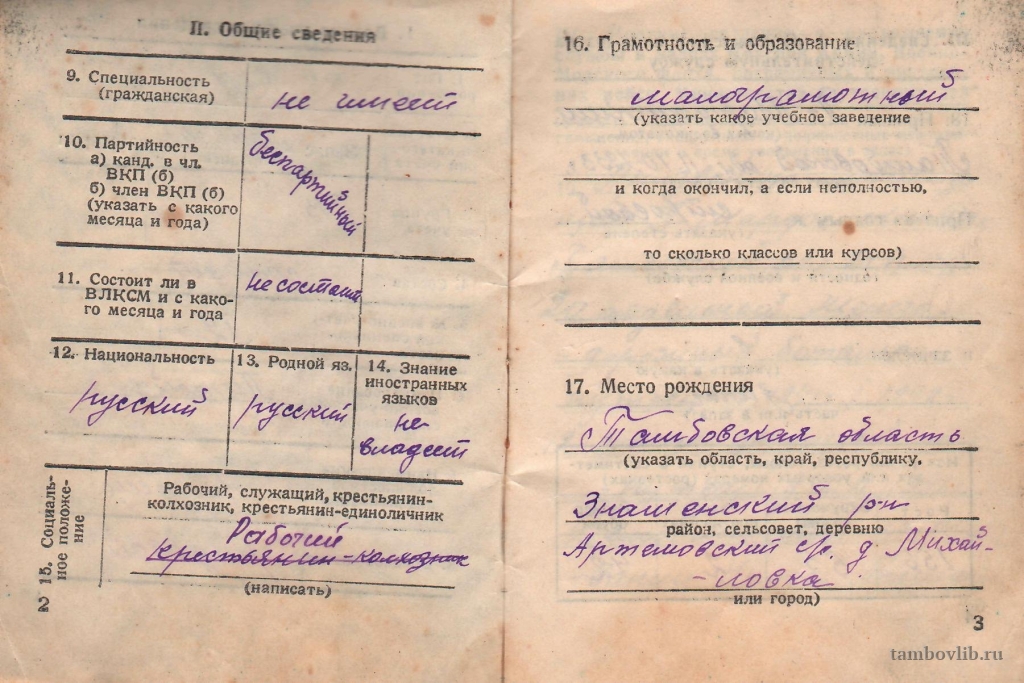 II. Общие сведения
9. Специальность
(гражданская)
не имеет
10. Партийность
а) канд. в чл.
ВКП (б)
б) член ВКП (б)
(указать с какого
месяца и года)
беспартийный
11. Состоит ли в
ВЛКСМ и с како-
го месяца и года
не состоит
12. Национальность
русский
13. Родной яз.
русский
14. Знание
иностранных
языков
не
владеет
15. Социаль-
ное положе-
ние
Рабочий, служащий, крестьянин-
колхозник, крестьянин-единоличник
Рабочий
крестьянин-колхозник
(написать)
2
16. Грамотность и образование
малограмотный
(указать какое учебное заведение
и когда окончил, а если неполностью,
то сколько классов или курсов)
17. Место рождения
Тамбовская область
(указать область, край, республику,
Знаменский р-н
район, сельсовет, деревню
Артемовский с/с. д. Михай-
-ловка
или город)
3
tambovlib.ru